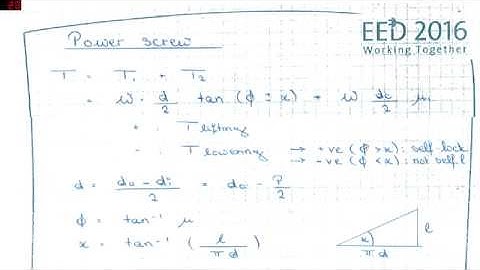 Power screw
EED 2016
Working Together
T = T₁ + T₂
= W · d/2 tan (ϕ ± α) + W dc/2 μ₁
∴ T lifting
∴ T lowering → +ve (ϕ > α) : self-lock
→ -ve (ϕ < α) : not self l
d = do - di / 2 = do - P/2
ϕ = tan⁻¹ μ
α = tan⁻¹ ( l / π d )
l
α
π d